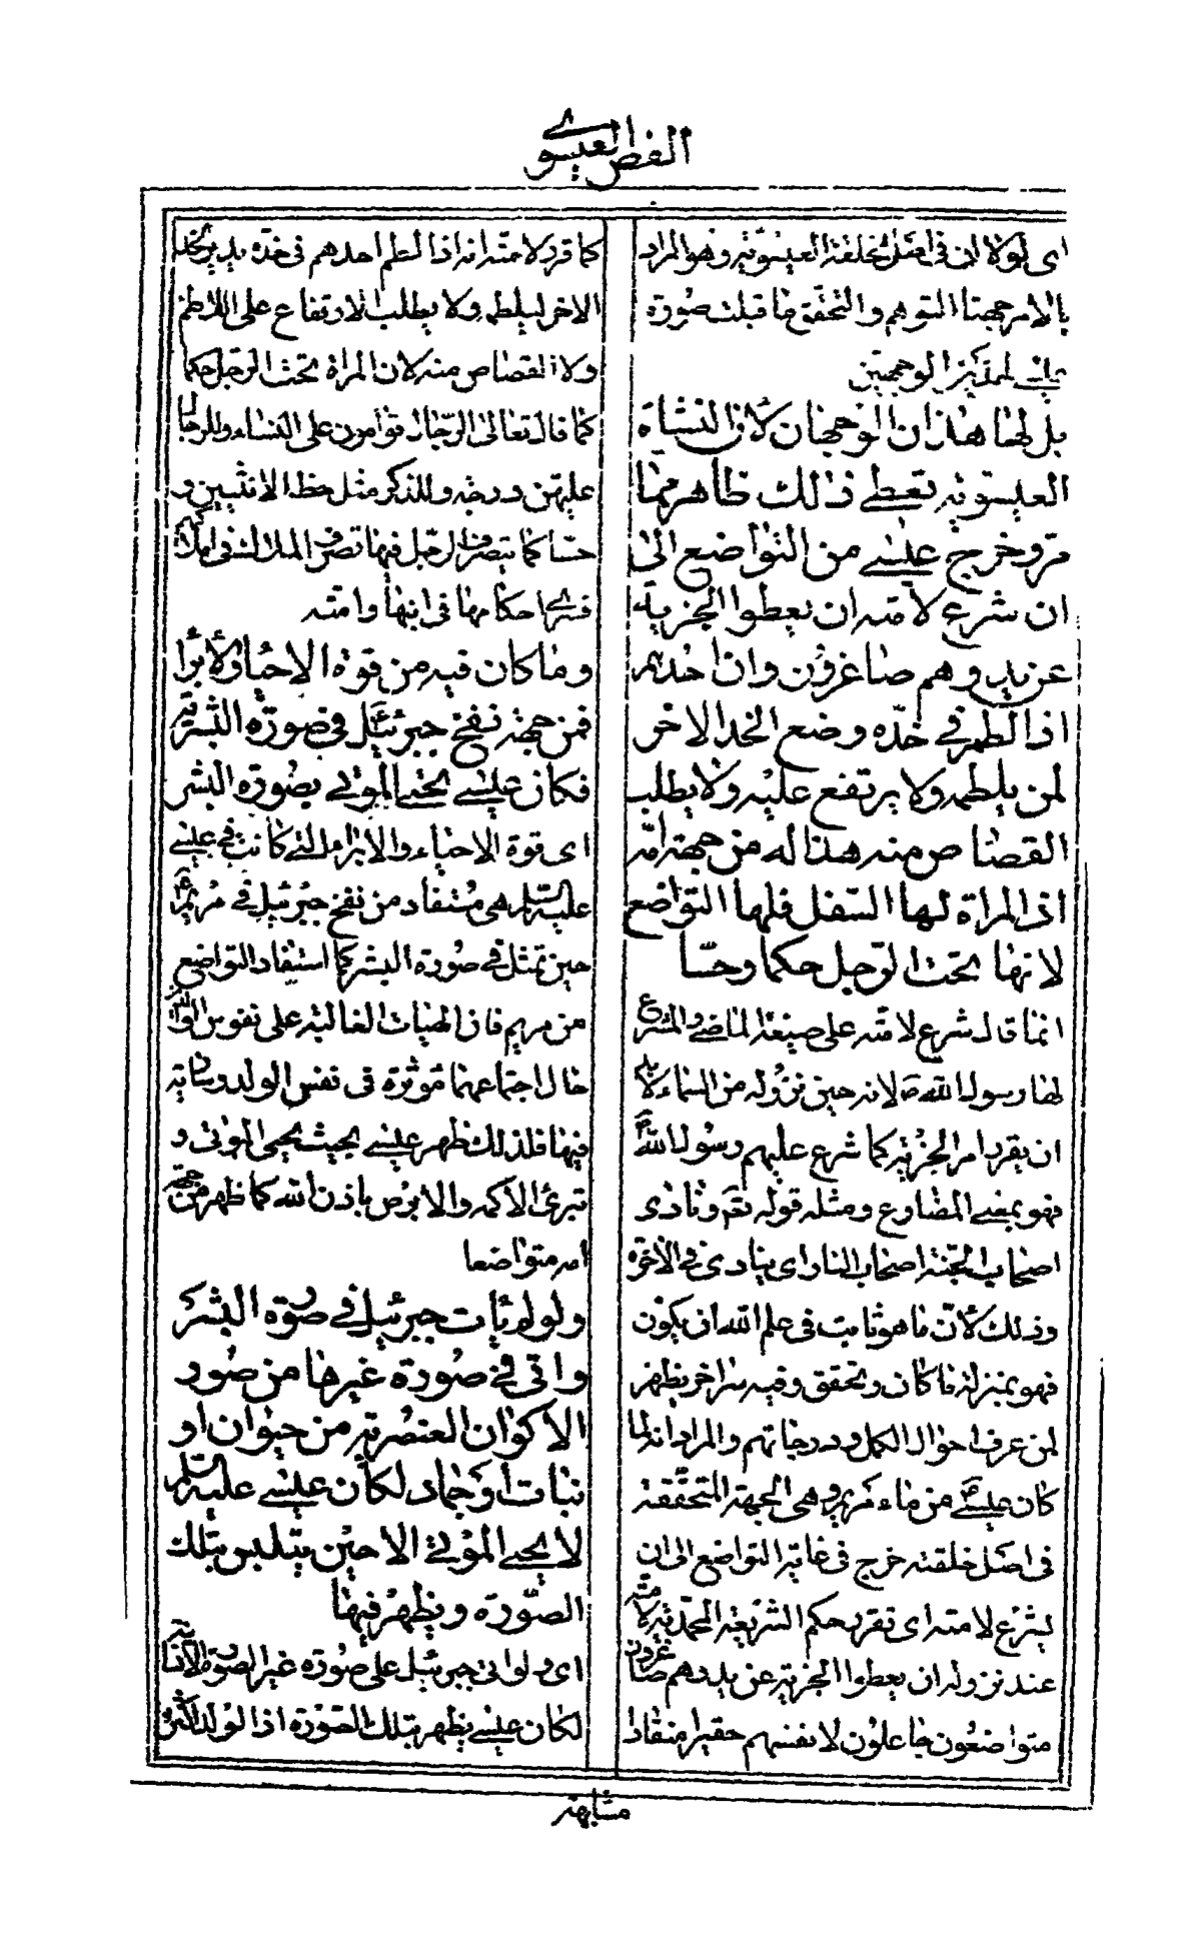 الفص العيسوي
اى لولا ان فى اصل الخلقة العيسوية وهو المراد
بالامر جهتا التوهم والتحقق ما قبلت صورة
عيسى لهذين الوجهين
بل لها هذان الوجهان لان النشاة
العيسوية تعطى ذلك ظاهر مما
مر وخرج عيسى من التواضع الى
ان شرع لامته ان يعطوا الجزية
عن يد وهم صاغرون وان احدهم
اذا لطم فى خدّه وضع الخد الاخر
لمن يلطمه ولا يرتفع عليه ولا يطلب
القصاص منه هذا له من جهة امّه
اذ المراة لها السفل فلها التواضع
لانها تحت الرجل حكما وحسّا
انما قال شرع لامته على صيغة الماضى والمشرع
لها رسول الله ص لانه حين نزوله من السماء لابد
ان يقرر امر الجزية كما شرع عليهم رسول الله
فهو بمعنى المضارع ومثله قوله تعم ونادى
اصحاب الجنة اصحاب النار اى ينادى فى الاخرة
وذلك لان ما هو ثابت فى علم الله ان يكون
فهو بمنزلة ما كان وتحقق وفيه سر اخر يظهر
لمن عرف احوال الكمل ودرجاتهم والمراد انه لما
كان عيسى من ماء مريم وهى الجهة المتحققة
فى اصل خلقته خرج فى غاية التواضع الى ان
يشرع لامته اى تقرر حكم الشريعة المحمدية لامته
عند نزوله ان يعطوا الجزية عن يد وهم صاغرون
متواضعون جاعلون لانفسهم حقيرا منقادا
كما قرر لامته انه اذا لطم احدهم فى خدّه يدير الخد
الاخر ليلطمه ولا يطلب الارتفاع على اللاطم
ولا القصاص منه لان المراة تحت الرجل حكما
كما قال تعالى الرجال قوامون على النساء وللرجال
عليهن درجة وللذكر مثل حظ الانثيين و
حسّا كما يتصرف الرجل فيها تصرف الملاك فى املاكهم
فسرى احكامها فى ابنها وامته
وما كان فيه من قوة الاحياء والابرا
فمن جهة نفخ جبرئيل فى صورة البشرية
فكان عيسى يحيى الموتى بصورة البشر
اى قوة الاحياء والابراء التى كانت فى عيسى
عليه السلم هى مستفاد من نفخ جبرئيل فى مريم
حين تمثل فى صورة البشر كما استفاد التواضع
من مريم فان الهيات الغالبة على نفوس الوالدين
حال اجتماعهما موثرة فى نفس الولد وسارية
فيها فلذلك ظهر عيسى بحيث يحيى الموتى و
تبرئ الاكمه والابرص باذن الله كما ظهر من جهة
امه متواضعا
ولو لم يأت جبرئيل فى صورة البشر
واتى فى صورة غيرها من صور
الاكوان العنصرية من حيوان او
نبات او جماد لكان عيسى عليه السلم
لا يحيى الموتى الا حين يتلبس بتلك
الصورة ويظهر فيها
اى ولو اتى جبرئيل على صورة غير الصورة الانسانية
لكان عيسى يظهر بتلك الصورة اذ الولد
مشابهة